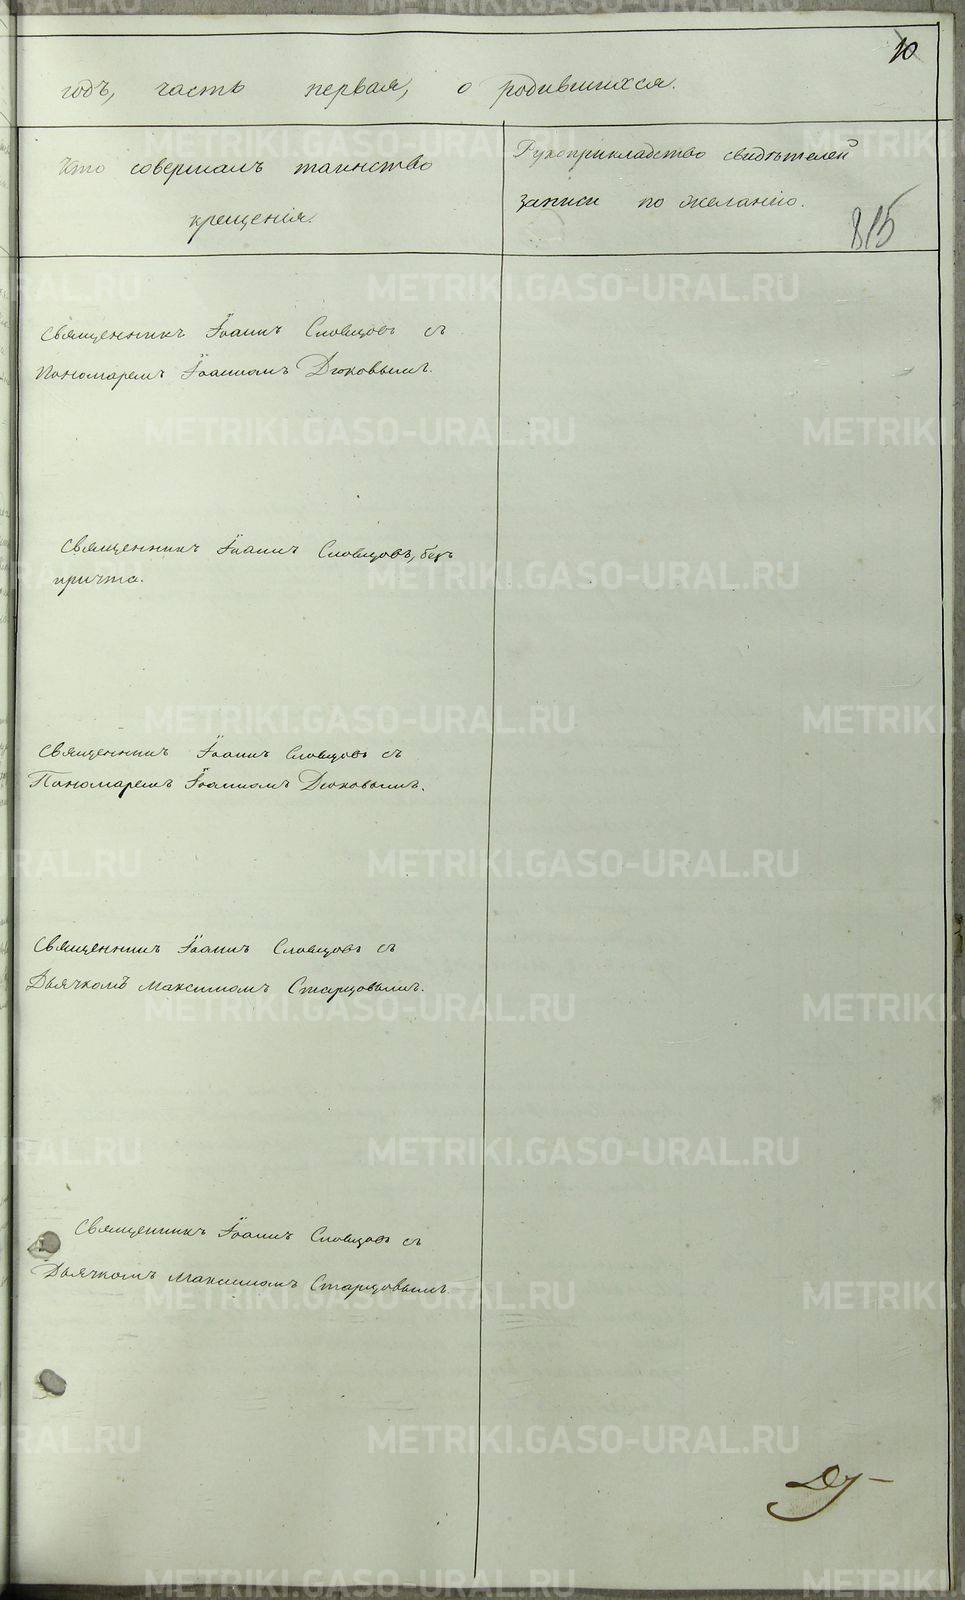 10
годъ, часть первая, о родившихся.
Кто совершалъ таинство
крещенія.
Рукоприкладство свидѣтелей
записи по желанію.
815
Священникъ Іоаннъ Словцовъ съ
Пономаремъ Іоанномъ Дюковымъ.
Священникъ Іоаннъ Словцовъ, безъ
причта.
Священникъ Іоаннъ Словцовъ съ
Пономаремъ Іоанномъ Дюковымъ.
Священникъ Іоаннъ Словцовъ съ
Дьячкомъ Максимомъ Старцовымъ.
Священникъ Іоаннъ Словцовъ съ
Дьячкомъ Максимомъ Старцовымъ.
METRIKI.GASO-URAL.RU